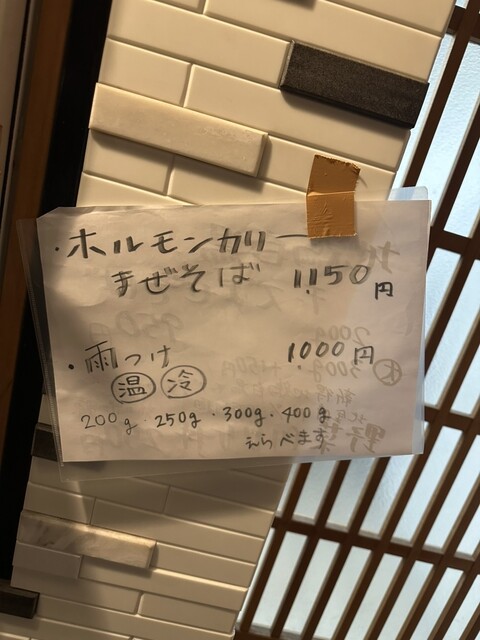 ・ホルモンカリー
まぜそば 1150円
・雨つけ 1000円
温 冷
200g・250g・300g・400g
えらべます